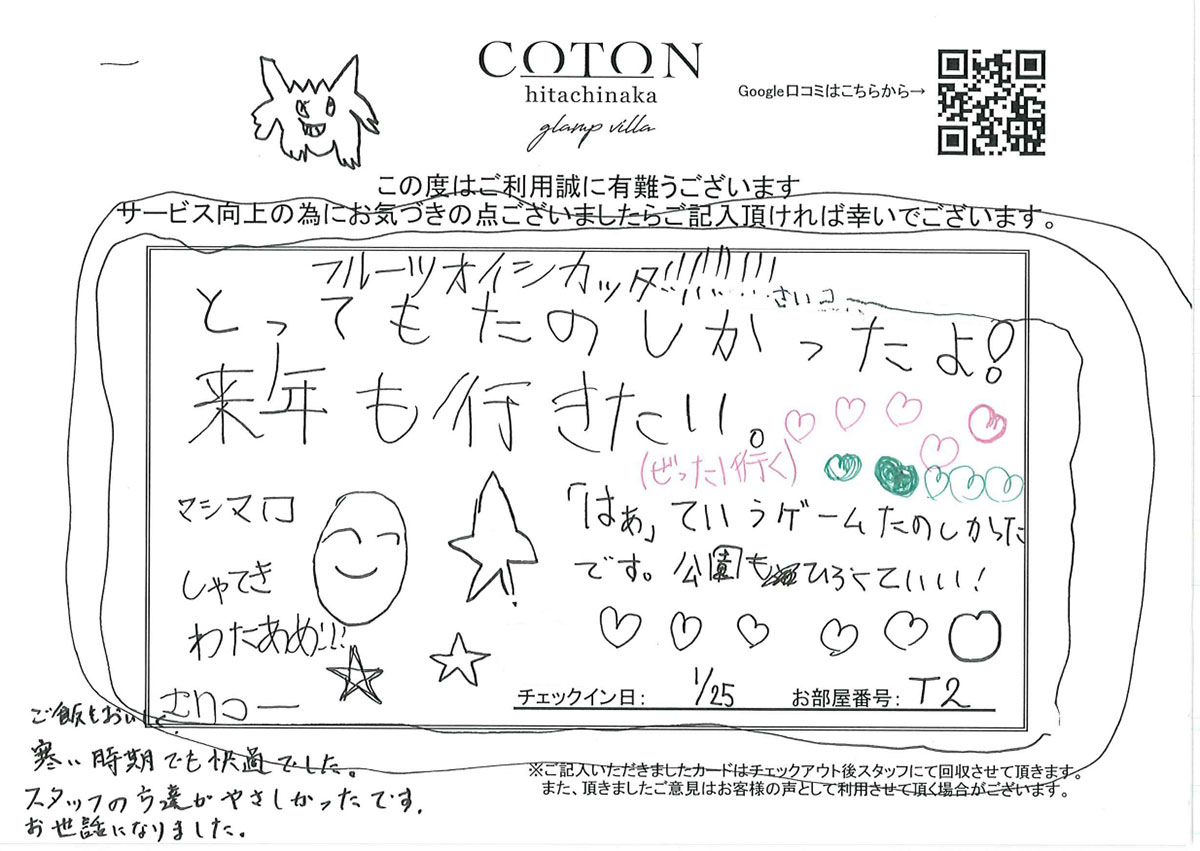 COTON
hitachinaka
glamp villa
Google口コミはこちらから→
この度はご利用誠に有難うございます
サービス向上の為にお気づきの点ございましたらご記入頂ければ幸いでございます。
フルーツオイシカッタ!!!!!!!!!
さいコー
とってもたのしかったよ!
来年も行きたい。
(ぜったい行く)
マシマロ
しゃてき
わたあめ!!!
さいコー
「はぁ」ていうゲームたのしかった
です。公園もひろくていい!
チェックイン日: 1/25 お部屋番号: T2
ご飯もおいしく、
寒い時期でも快適でした。
スタッフの方達がやさしかったです。
お世話になりました。
※ご記入いただきましたカードはチェックアウト後スタッフにて回収させて頂きます。
また、頂きましたご意見はお客様の声として利用させて頂く場合がございます。